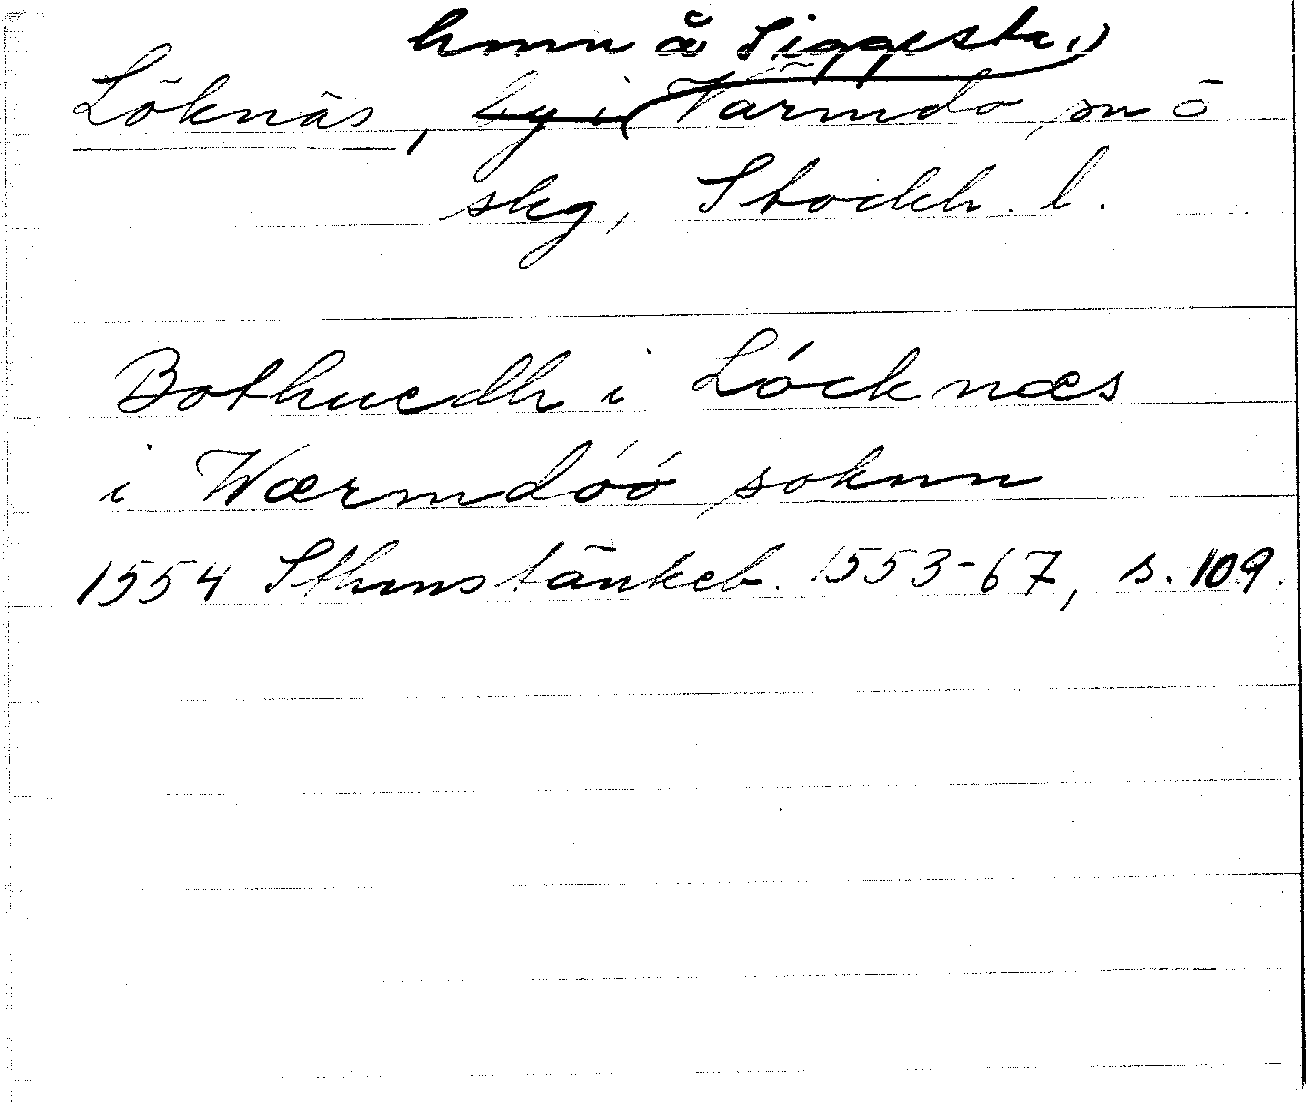 hmn å Siggesta,)
Löknäs, by i Värmdö sn o
skg, Stockh. l.
Bothuedh i Lócknæs
i Wærmdóó soknn
1554 Sthms tänkeb. 1553-67, s. 109.